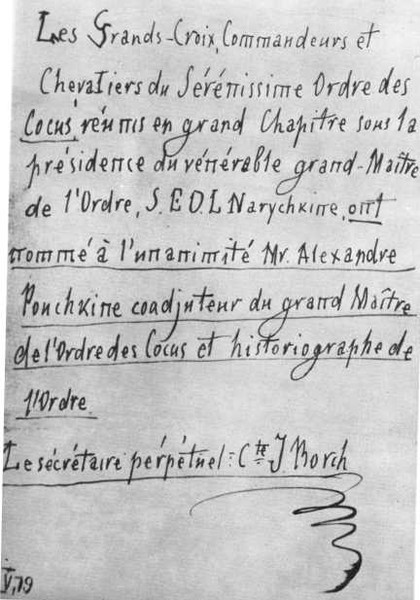 Les Grands-Croix, Commandeurs et
Chevaliers du Sérénissime Ordre des
Cocus, réunis en grand Chapitre sous la
présidence du vénérable grand-Maître
de l'Ordre, S. E. D. L Narychkine, ont
nommé à l'unanimité Mr. Alexandre
Pouchkine coadjuteur du grand Maître
de l'Ordre des Cocus et historiographe de
l'Ordre.
Le sécrétaire perpétuel: Cte J. Borch
V,79